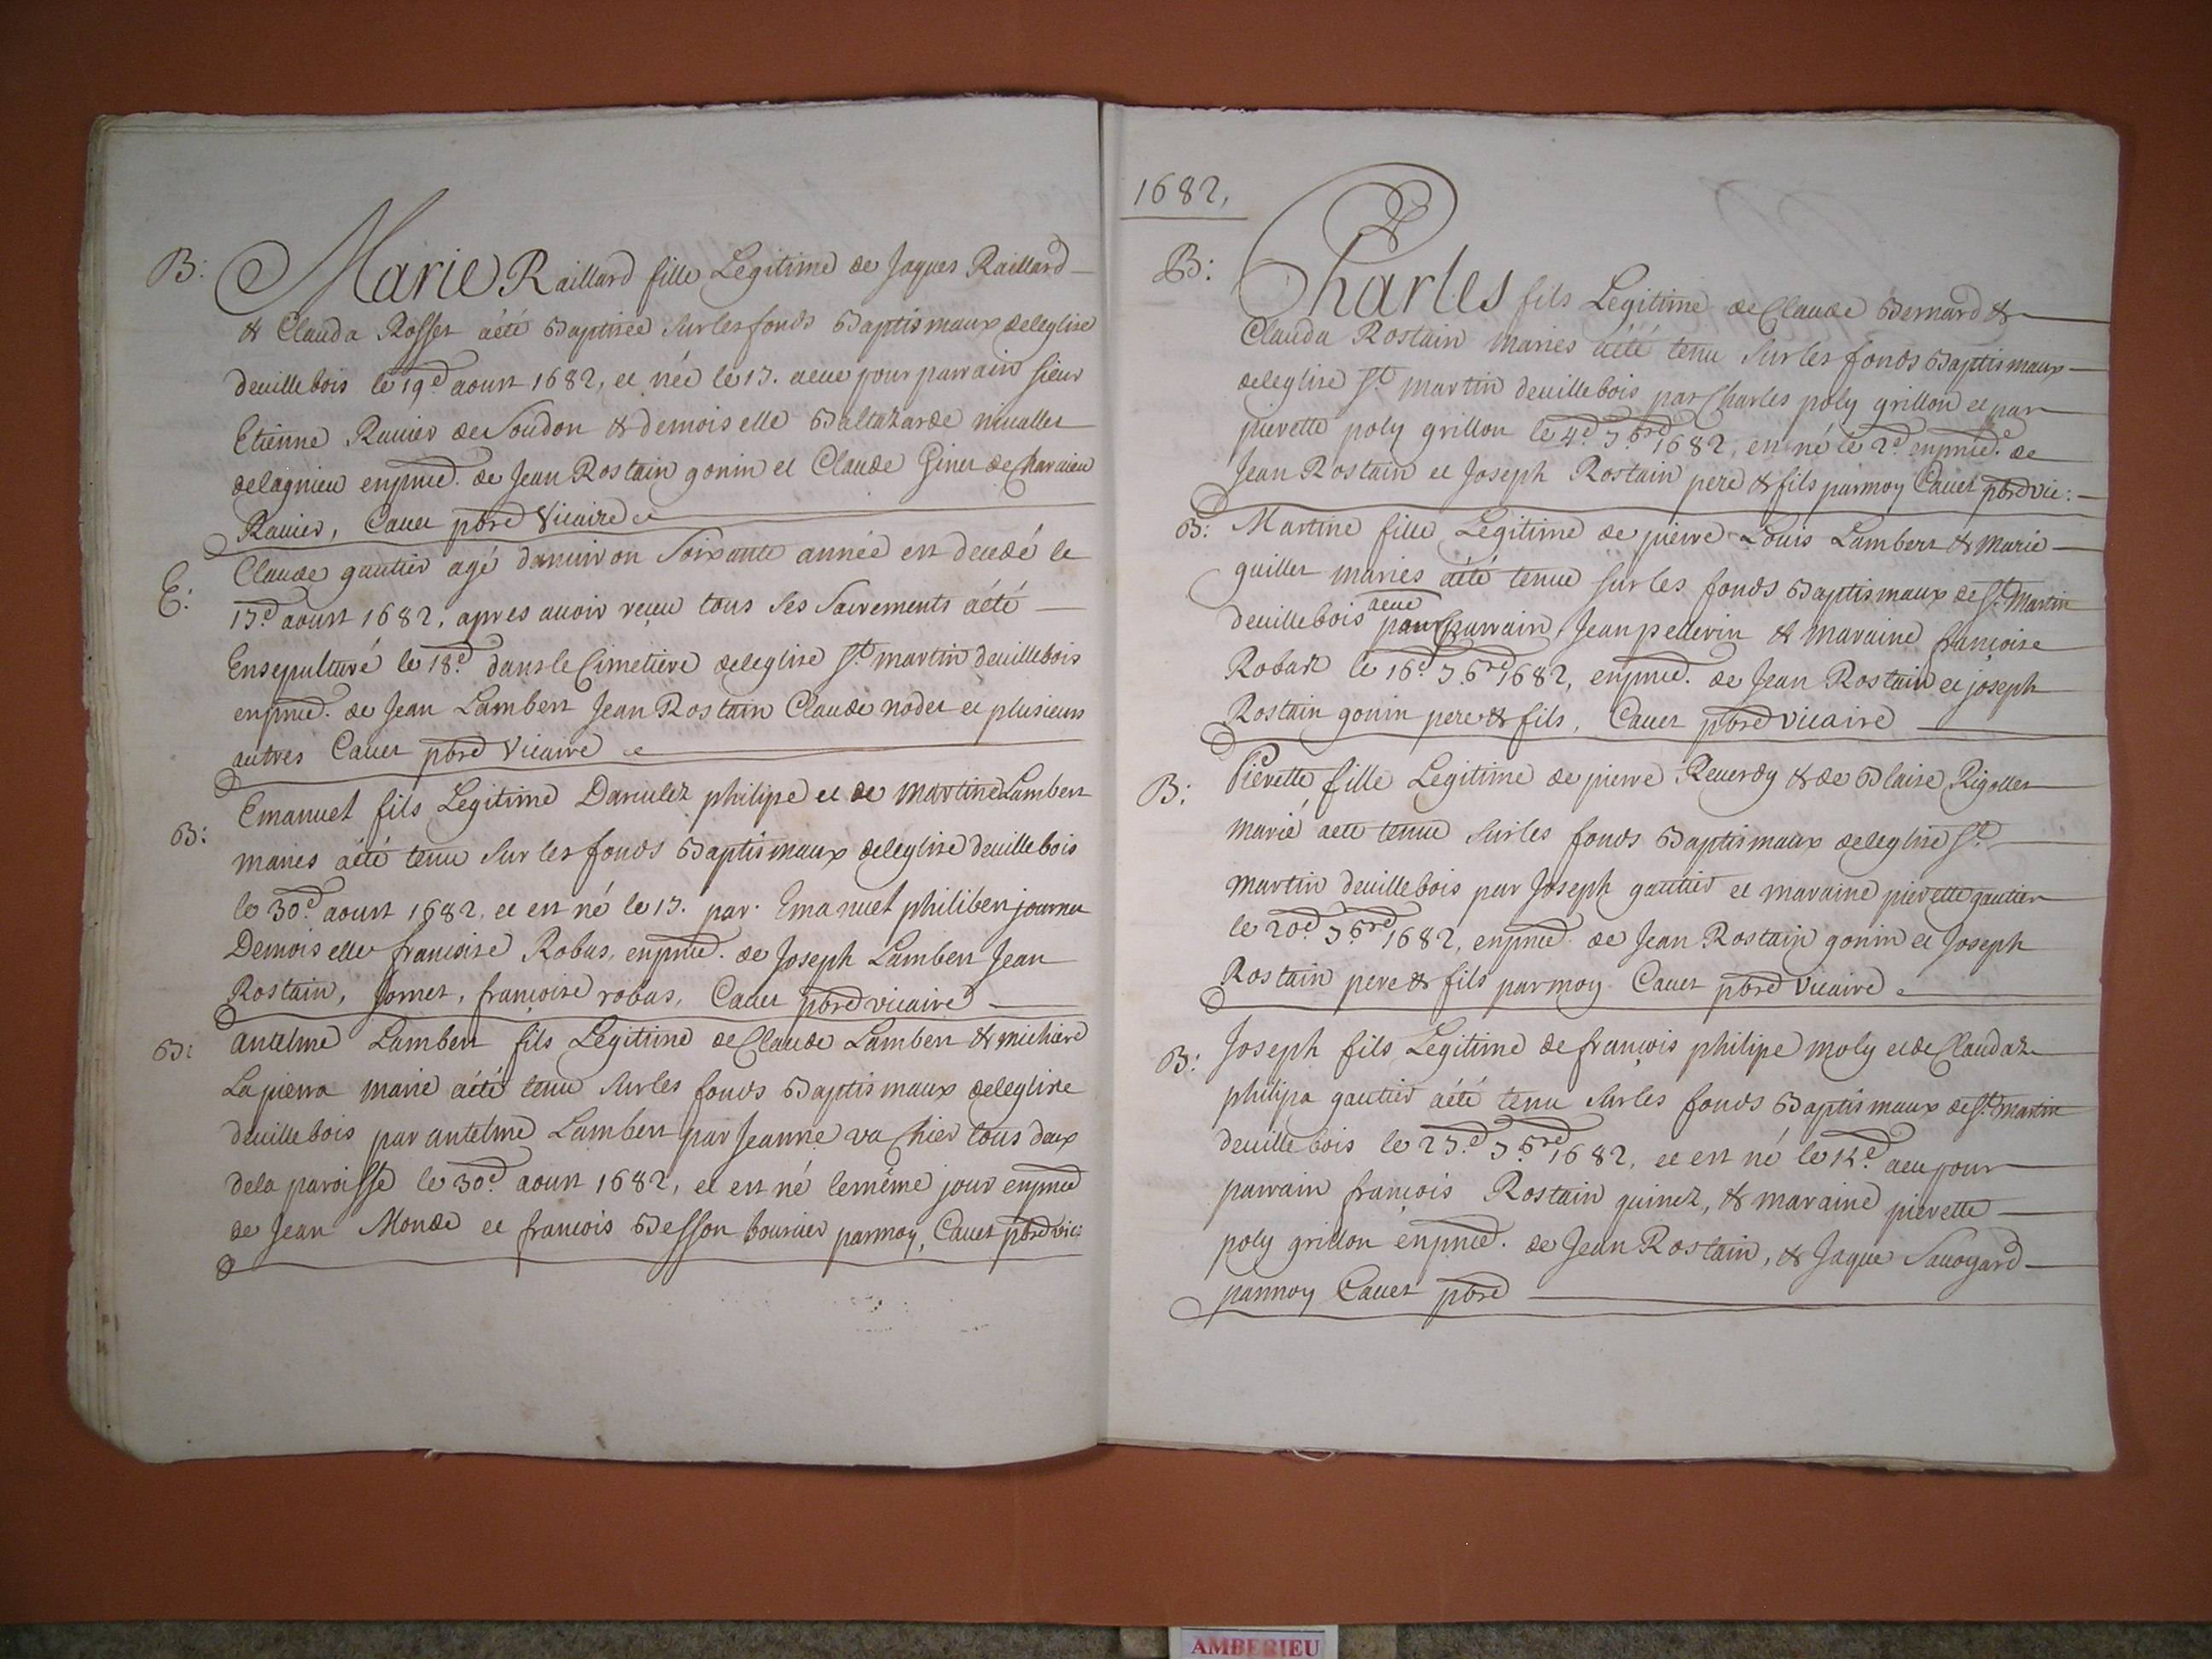 B: Marie Raillard fille Legitime de Jaques Raillard
& Clauda Rosset aété Baptisée sur les fonds Baptismaux deleglise
deuillebois le 19.e aoust 1682, et née le 17. aeue pour parrain sieur
Etienne Rauier de Soudon & demoiselle Baltazarde niuallet
delagnieu enpnce. de Jean Rostain gonin et Claude Ginet de Charaieu
Rauier, Cauet pbre Vicaire
E: Claude gautier agé danuiron Soixante année est decedé le
17.e aoust 1682, apres auoir reçeu tous ses Sacrements aété
Ensepulturé le 18.e dans le Cimetiere deleglise St. martin deuillebois
enpnce. de Jean Lambert Jean Rostain Claude nodet et plusieurs
autres Cauet pbre Vicaire
B: Emanuel fils Legitime philipe et de Martine Lambert
maries aété tenu sur les fonds Baptismaux deleglise deuillebois
le 30.e aoust 1682, et est né le 17. par Emanuel philibert journet
Demoiselle francoise Robas, enpnce. de Joseph Lambert Jean
Rostain, Jornet, françoise robas, Cauet pbre vicaire
B: antelme Lambert fils Legitime de Claude Lambert & michiere
Lapierra marie aété tenu sur les fonds Baptismaux deleglise
deuillebois par antelme Lambert par Jeanne vachier tous deux
dela paroisse le 30.e aoust 1682, et est né lemême jour enpnce
de Jean Monde et francois Besson bourcier parmoy, Cauet pbre vic:
1682,
B: Charles fils Legitime de Claude Bernard &
Clauda Rostain maries aété tenu sur les fonds Baptismaux
deleglise St. martin deuillebois par Charles poly grillon et par
pierette poly grillon le 4.e 7bre 1682, est né le 2.e enpnce. de
Jean Rostain et Joseph Rostain pere & fils parmoy Cauet pbre vic:
B: Martine fille Legitime de pierre Louis Lambert & marie
guillet maries aété tenue sur les fonds Baptismaux de St. Martin
deuillebois aeue pour parrain Jean pellerin & maraine françoise
Robast le 16.e 7bre 1682, enpnce. de Jean Rostain et joseph
Rostain gonin pere & fils, Cauet pbre vicaire
B: Pierette fille Legitime de pierre Reuerdy & de Blaise Rigollet
marié aete tenue sur les fonds Baptismaux deleglise St.
martin deuillebois par Joseph gautier et maraine pierette gautier
le 20.e 7bre 1682, enpnce. de Jean Rostain gonin et Joseph
Rostain pere & fils parmoy Cauet pbre Vicaire
B: Joseph fils Legitime de françois philipe moly et de Claudaz
philipa gautier aété tenu sur les fonds Baptismaux de St. martin
deuillebois le 27.e 7bre 1682, et est né le aeu pour
parrain françois Rostain guinez, & maraine pierette
poly grillon enpnce. de Jean Rostain, & Jaque Sauoyard
parmoy Cauet pbre
AMBERIEU